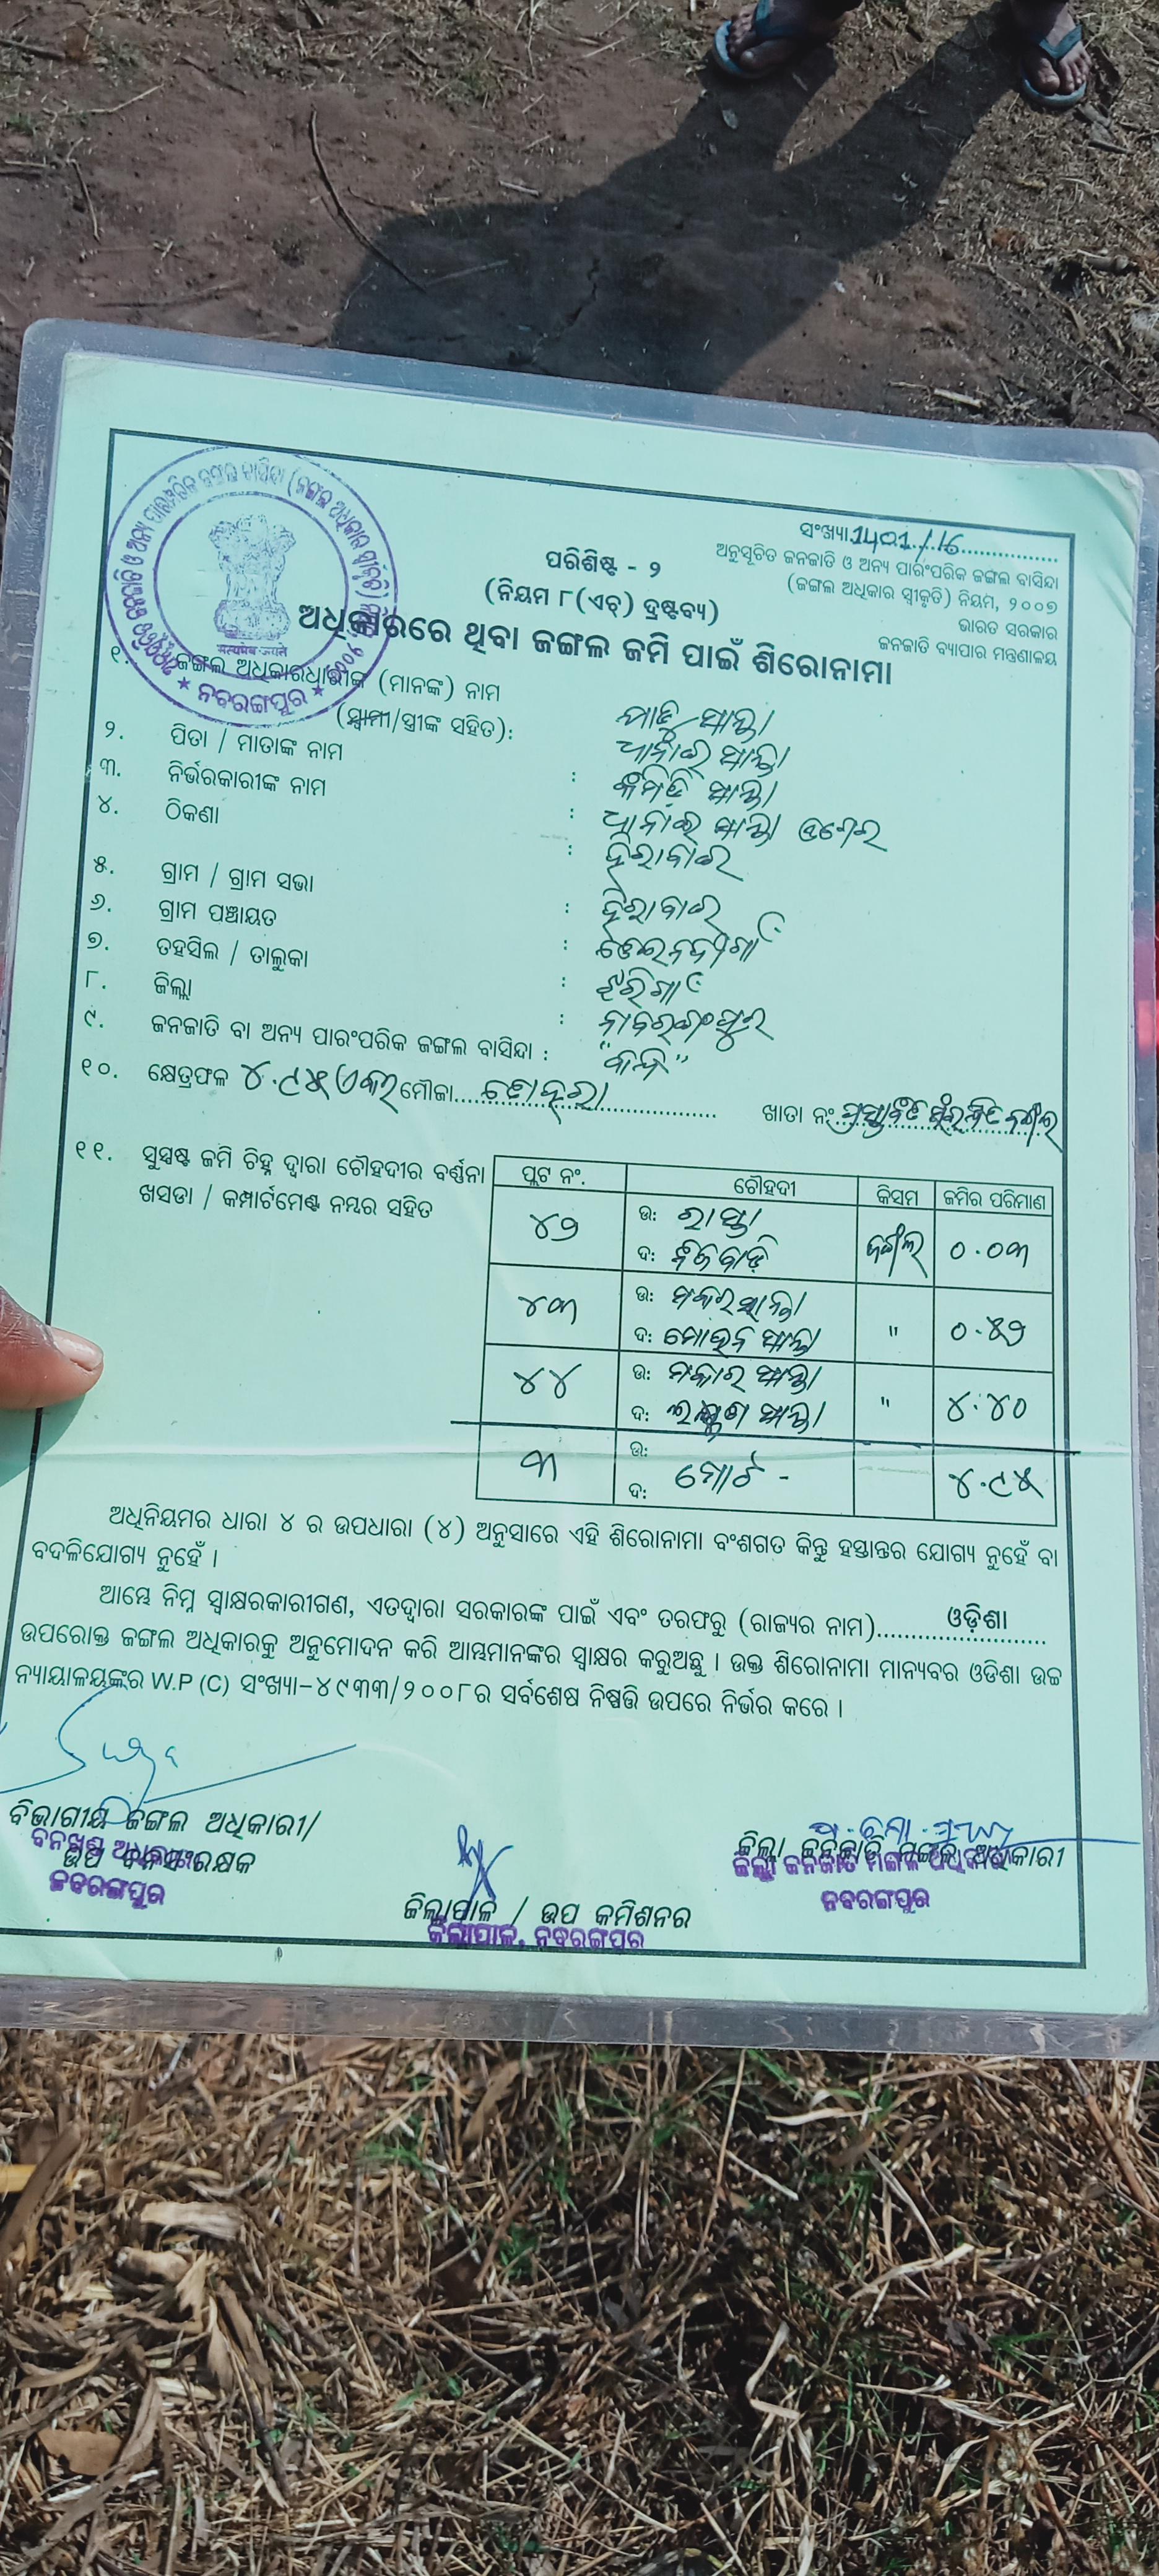 ସଂଖ୍ୟା 1401/16
ଅନୁସୂଚିତ ଜନଜାତି ଓ ଅନ୍ୟ ପାରଂପରିକ ଜଙ୍ଗଲ ବାସିନ୍ଦା
(ଜଙ୍ଗଲ ଅଧିକାର ସ୍ୱୀକୃତି) ନିୟମ, ୨୦୦୭
ଭାରତ ସରକାର
ଜନଜାତି ବ୍ୟାପାର ମନ୍ତ୍ରଣାଳୟ
ପରିଶିଷ୍ଟ - ୨
(ନିୟମ ୮(ଏଚ୍) ଦ୍ରଷ୍ଟବ୍ୟ)
ଅଧିକାରରେ ଥିବା ଜଙ୍ଗଲ ଜମି ପାଇଁ ଶିରୋନାମା
सत्यमेव जयते
★ ନବରଙ୍ଗପୁର ★
୧. ଜଙ୍ଗଲ ଅଧିକାରଧାରୀଙ୍କ (ମାନଙ୍କ) ନାମ
(ସ୍ୱାମୀ/ସ୍ତ୍ରୀଙ୍କ ସହିତ):
୨. ପିତା / ମାତାଙ୍କ ନାମ :
୩. ନିର୍ଭରକାରୀଙ୍କ ନାମ :
୪. ଠିକଣା : ହିରାବାଇ
୫. ଗ୍ରାମ / ଗ୍ରାମ ସଭା : ହିରାବାଇ
୬. ଗ୍ରାମ ପଞ୍ଚାୟତ :
୭. ତହସିଲ / ତାଲୁକା : ଝରିଗାଁ
୮. ଜିଲ୍ଲା : ନାବରଙ୍ଗପୁର
୯. ଜନଜାତି ବା ଅନ୍ୟ ପାରଂପରିକ ଜଙ୍ଗଲ ବାସିନ୍ଦା :
୧୦. କ୍ଷେତ୍ରଫଳ ୪.୯୫ ଏକର ମୌଜା ଖାତା ନଂ ପ୍ରସ୍ତାବିତ ସଂରକ୍ଷିତ ଜଙ୍ଗଲ
୧୧. ସୁସ୍ପଷ୍ଟ ଜମି ଚିହ୍ନ ଦ୍ୱାରା ଚୌହଦୀର ବର୍ଣ୍ଣନା
ଖସଡା / କମ୍ପାର୍ଟମେଣ୍ଟ ନମ୍ବର ସହିତ
ପ୍ଲଟ ନଂ. ଚୌହଦୀ କିସମ ଜମିର ପରିମାଣ
୪୨ ଉ: ରାସ୍ତା ଜଙ୍ଗଲ ୦.୦୩
ଦ: ନିଜବାଡ଼ି
୪୩ ଉ: ମକର ସାନ୍ତା " ୦.୫୨
ଦ: ମୋହନ ସାନ୍ତା
୪୪ ଉ: ମକାର ସାନ୍ତା " ୪.୪୦
ଦ: ଲକ୍ଷ୍ମଣ ସାନ୍ତା
୩ ଉ: ମୋଟ - ୪.୯୫
ଦ:
ଅଧିନିୟମର ଧାରା ୪ ର ଉପଧାରା (୪) ଅନୁସାରେ ଏହି ଶିରୋନାମା ବଂଶଗତ କିନ୍ତୁ ହସ୍ତାନ୍ତର ଯୋଗ୍ୟ ନୁହେଁ ବା
ବଦଳିଯୋଗ୍ୟ ନୁହେଁ ।
ଆମ୍ଭେ ନିମ୍ନ ସ୍ୱାକ୍ଷରକାରୀଗଣ, ଏତଦ୍ୱାରା ସରକାରଙ୍କ ପାଇଁ ଏବଂ ତରଫରୁ (ରାଜ୍ୟର ନାମ) ଓଡ଼ିଶା
ଉପରୋକ୍ତ ଜଙ୍ଗଲ ଅଧିକାରକୁ ଅନୁମୋଦନ କରି ଆମ୍ଭମାନଙ୍କର ସ୍ୱାକ୍ଷର କରୁଅଛୁ । ଉକ୍ତ ଶିରୋନାମା ମାନ୍ୟବର ଓଡିଶା ଉଚ୍ଚ
ନ୍ୟାୟାଳୟଙ୍କର W.P (C) ସଂଖ୍ୟା-୪୯୩୩/୨୦୦୮ର ସର୍ବଶେଷ ନିଷ୍ପତ୍ତି ଉପରେ ନିର୍ଭର କରେ ।
ବିଭାଗୀୟ ଜଙ୍ଗଲ ଅଧିକାରୀ/
ଉପ ବନସଂରକ୍ଷକ
ବନଖଣ୍ଡ ଅଧିକାରୀ
ନବରଙ୍ଗପୁର
ଜିଲ୍ଲାପାଳ / ଉପ କମିଶନର
ଜିଲ୍ଲାପାଳ, ନବରଙ୍ଗପୁର
ଜିଲ୍ଲା ଜନଜାତି ମଙ୍ଗଳ ଅଧିକାରୀ
ଜିଲ୍ଲା ଜନଜାତି ମଙ୍ଗଳ ଅଧିକାରୀ
ନବରଙ୍ଗପୁର